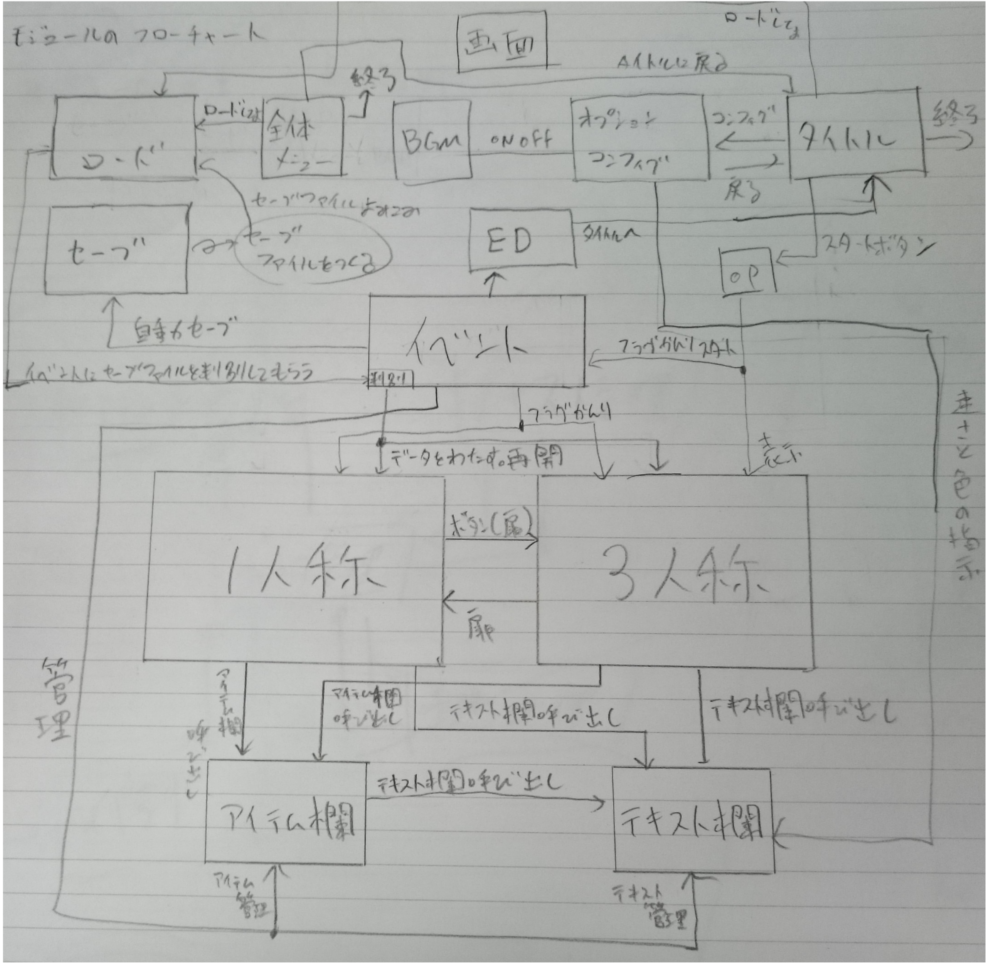 モジュールの フローチャート
画面
ロードしてよ
タイトルに戻る
終了
ロード
ロードしてよ
全体
メニュー
BGM
ON OFF
オプション
コンフィグ
コンフィグ
戻る
タイトル
終了
セーブファイルよみこみ
セーブ
セーブ
ファイルをつくる
ED
タイトルへ
スタートボタン
OP
自動セーブ
イベント
フラグかんり スタート
イベントにセーブファイルを判別してもらう
判別
フラグかんり
データをわたす。再開
表示
速さと色の指示
1人称
ボタン(扉)
扉
3人称
管理
アイテム欄
呼び出し
アイテム欄
呼び出し
テキスト欄呼び出し
テキスト欄呼び出し
アイテム欄
テキスト欄呼び出し
テキスト欄
アイテム
管理
テキスト
管理